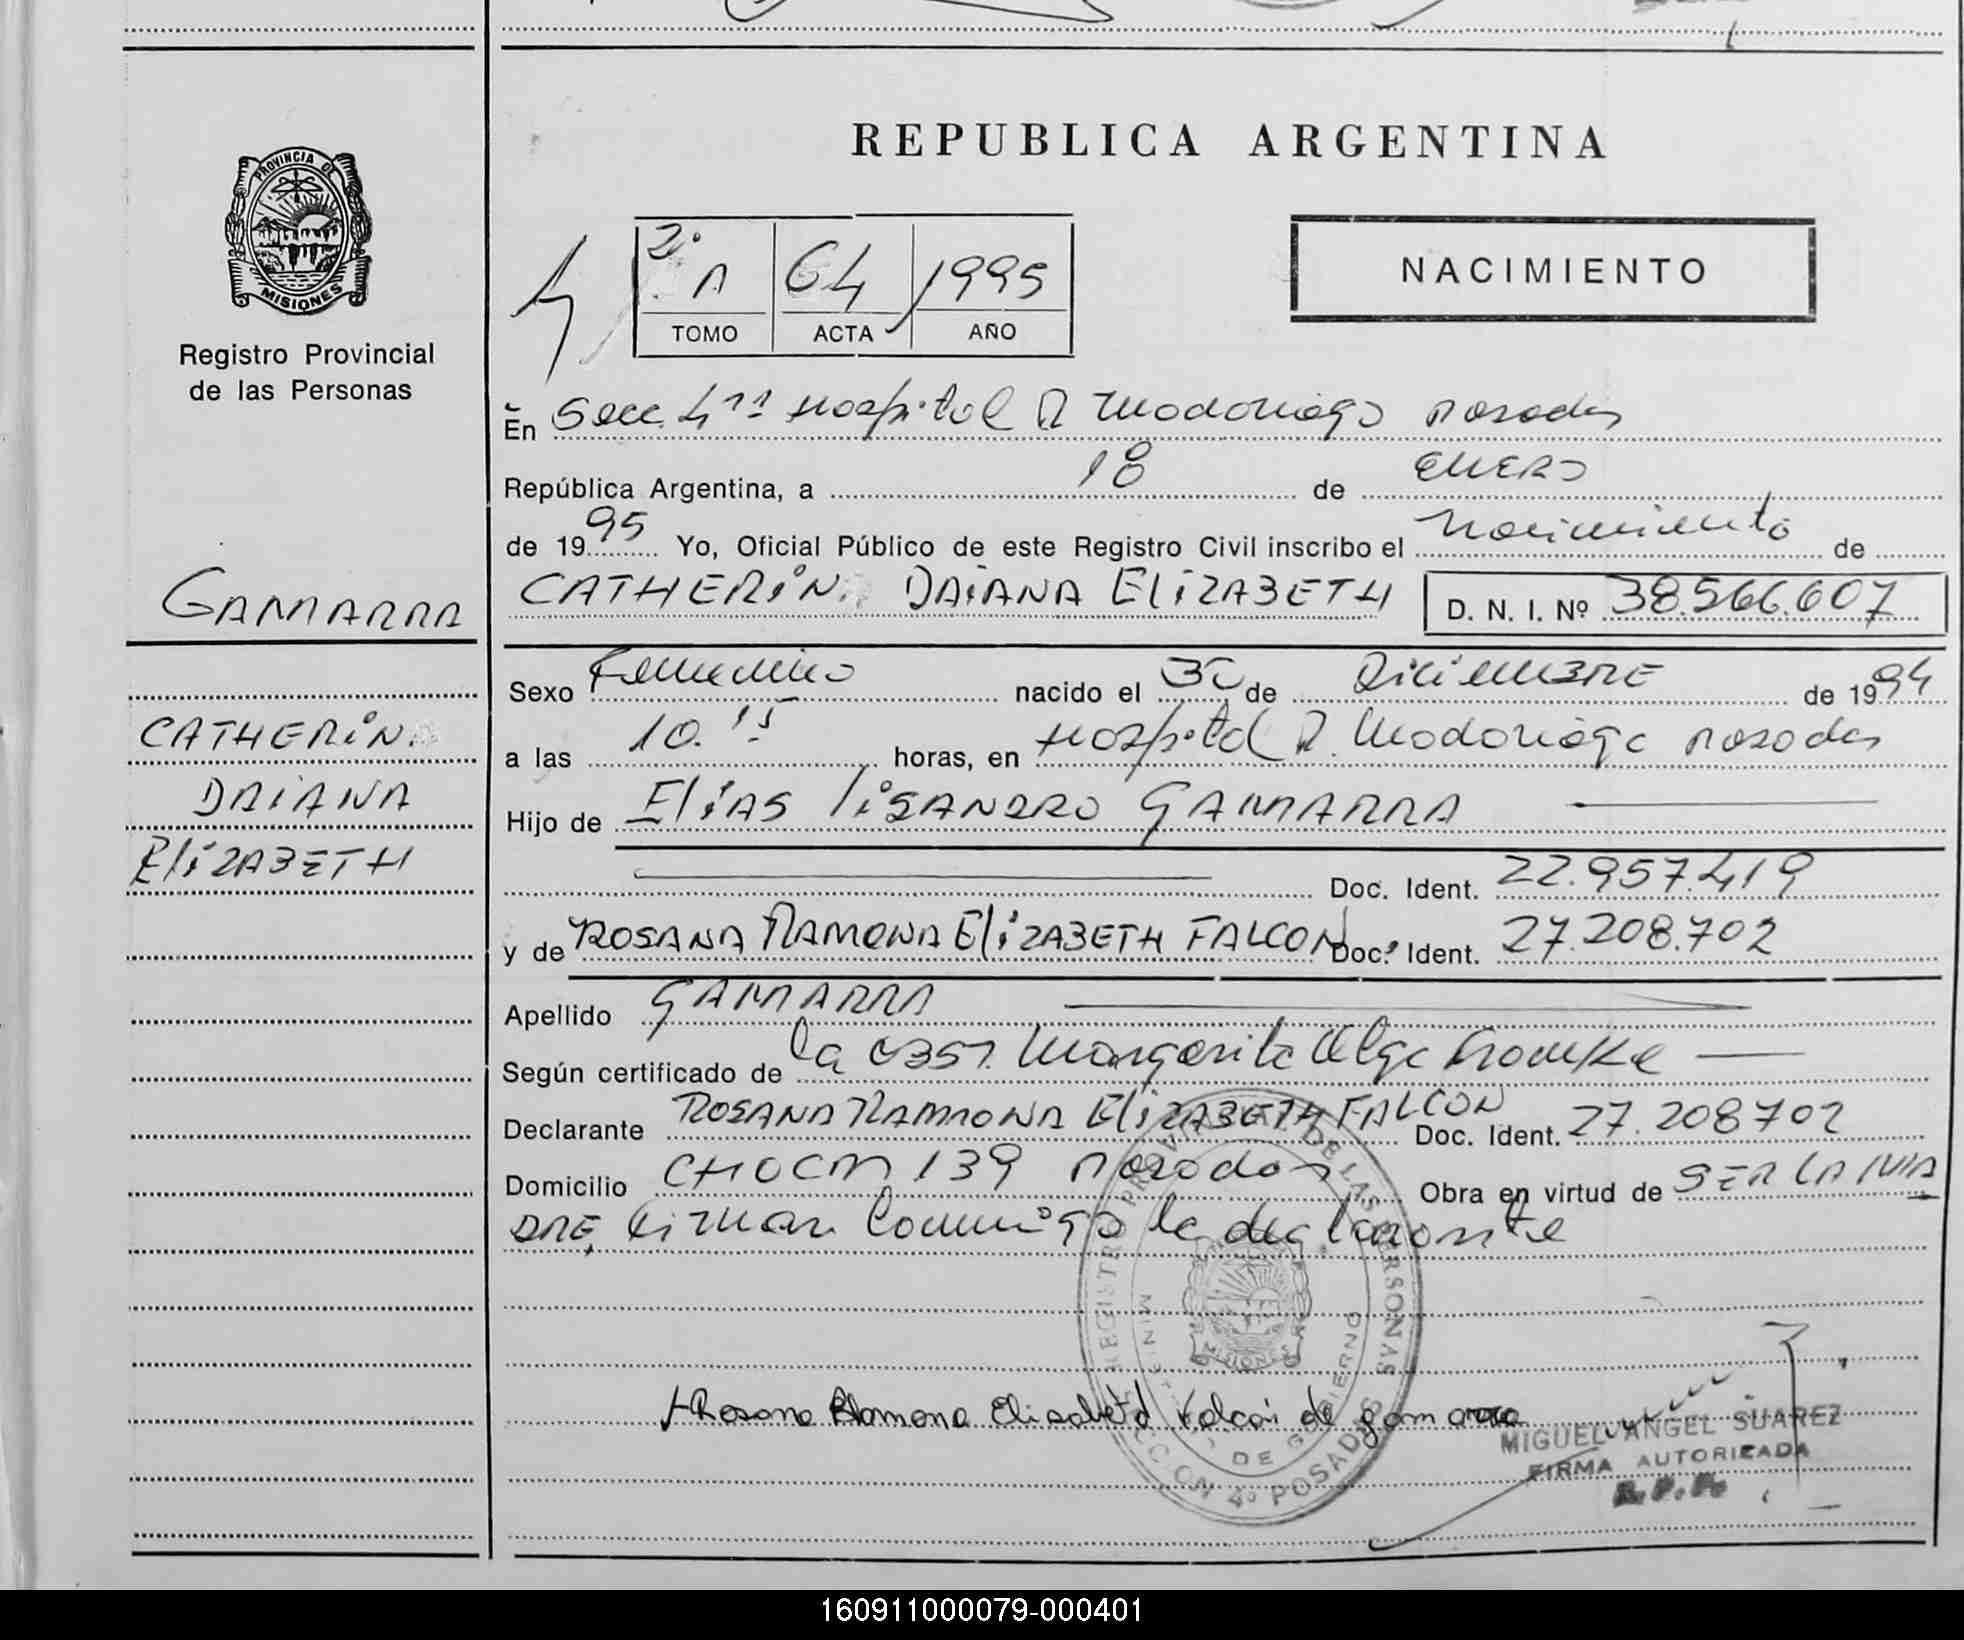 REPUBLICA ARGENTINA
PROVINCIA DE
MISIONES
Registro Provincial
de las Personas
2º A 64 1995
TOMO ACTA AÑO
NACIMIENTO
En Secc. 4ta Hospital R Madariaga Posadas
República Argentina, a 18 de ENERO
de 1995 Yo, Oficial Público de este Registro Civil inscribo el Nacimiento de
CATHERIN DAIANA ELIZABETH D. N. I. Nº 38.566.607
GAMARRA
CATHERIN
DAIANA
ELIZABETH
Sexo Femenino nacido el 30 de DiciEMBRE de 1994
a las 10.15 horas, en Hospital R. Madariaga Posadas
Hijo de ELIAS LISANDRO GAMARRA
Doc. Ident. 22.957.419
y de ROSANA RAMONA ELIZABETH FALCON Doc. Ident. 27.208.702
Apellido GAMARRA
Según certificado de la obst. Margarita Olga
Declarante ROSANA RAMONA ELIZABETH FALCON Doc. Ident. 27.208702
Domicilio CHOCM 139 Posadas Obra en virtud de SER LA MA
DRE, Firman Conmigo la declarante
REGISTRO PROVINCIAL DE LAS PERSONAS
MINIST. DE GOBIERNO
MISIONES
SECCION 4ª POSADAS
Rosana Ramona Elisabeth Falcón de gamarra
MIGUEL ANGEL SUAREZ
FIRMA AUTORIZADA
R. P. P.
160911000079-000401